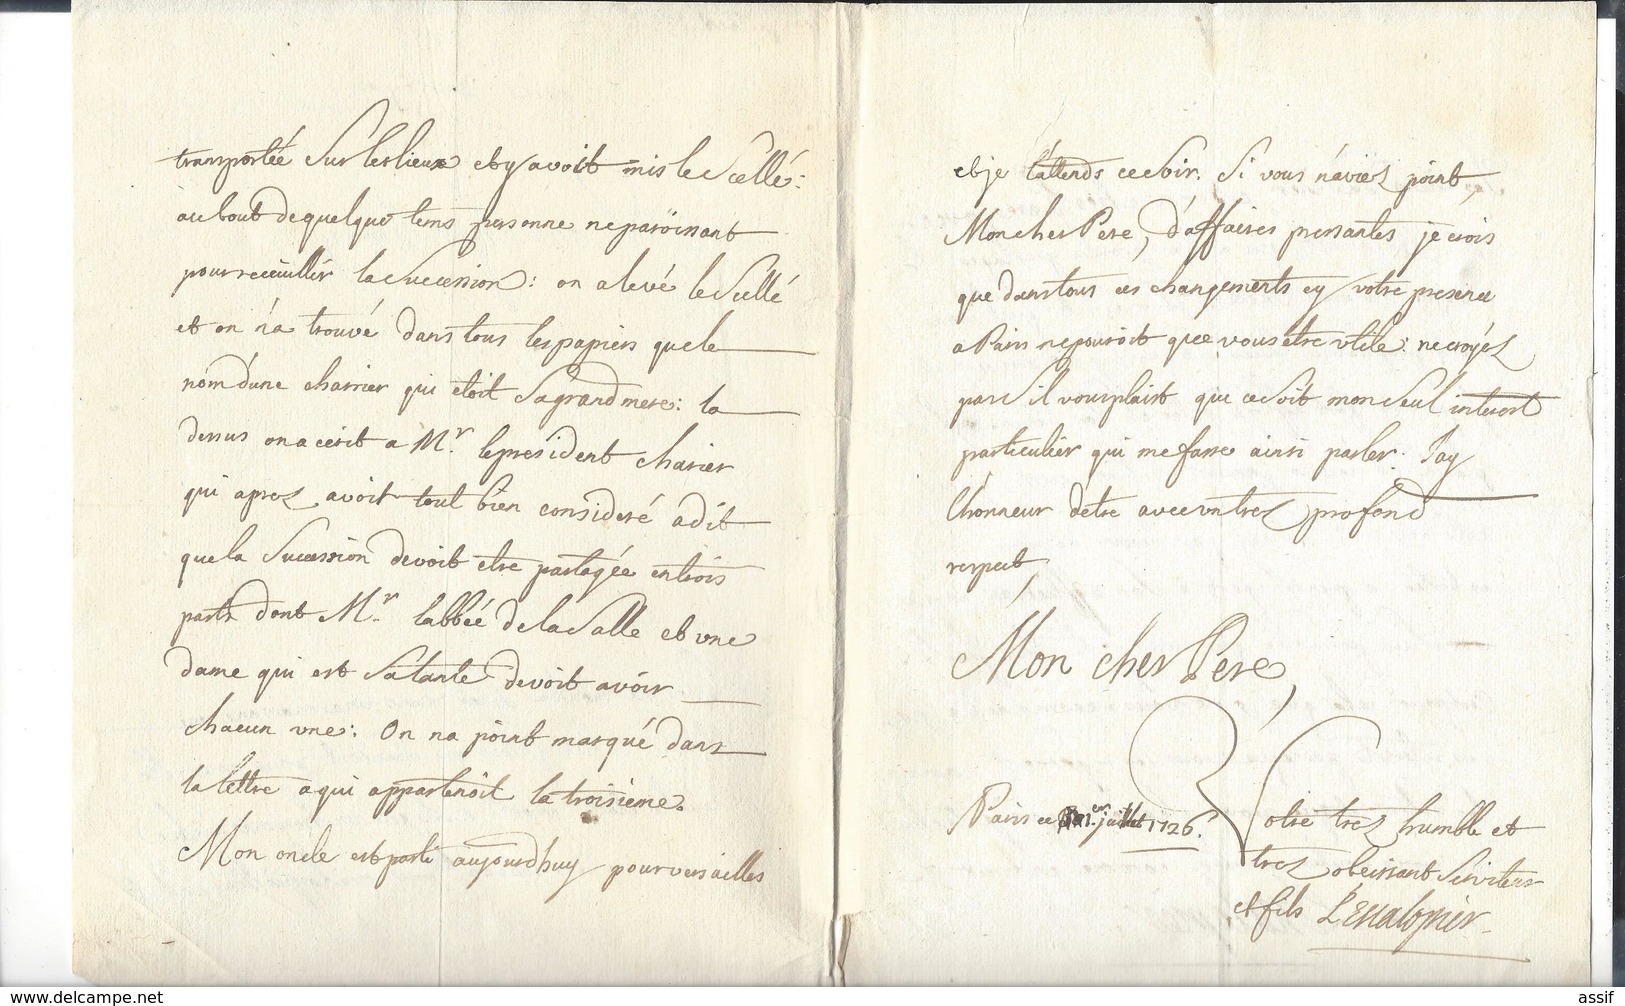 transportée sur les lieux et y avoit mis le scellé:
au bout de quelque tems personne ne paroissant
pour receuillir la succession: on a levé le scellé
et on n'a trouvé dans tous les papiers que le
nom d'une charrier qui étoit sa grand mere: la
dessus on a écrit a Mr. le president charier
qui aprez avoir tout bien consideré a dit
que la sucession devoit etre partagée en trois
parts dont Mr. l'abbéé de la Salle et une
dame qui est sa tante devoit avoir
chacun une: On na point marqué dans
la lettre a qui appartenoit la troisieme.
Mon oncle est parti aujourdhuy pour versailles
et je l'attends ce soir. Si vous n'aviez point,
Mon cher Pere, d'affaires pressantes je crois
que dans tous ces changements cy votre presence
a Paris ne pouroit que vous etre utile: ne croyés
pas s'il vous plaist que ce soit mon seul interest
particulier qui me fasse ainsi parler. J'ay
l'honneur d'etre avec un trez profond
respect,
Mon cher Pere,
Paris ce 1er. juillet 1726.
Votre trez humble et
trez obeissant serviteur
et fils L'Escalopier
assif